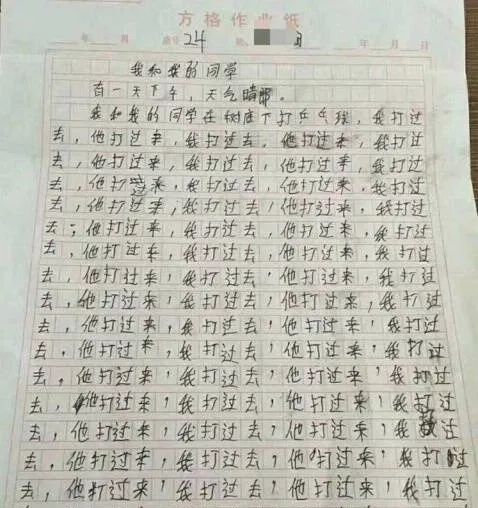 方格作业纸
年 月 24 年 月 日
我和我的同学
有一天下午，天气晴
我和我的同学在树底下打乒乓球，我打过
去，他打过来，我打过去，他打过来，我打过
去，他打过来，我打过去，他打过来，我打过
去，他打过来，我打过去，他打过来，我打过
去，他打过来，我打过去，他打过来，我打过
去，他打过来，我打过去，他打过来，我打过
去，他打过来，我打过去，他打过来，我打过
去，他打过来，我打过去，他打过来，我打过
去，他打过来，我打过去，他打过来，我打过
去，他打过来，我打过去，他打过来，我打过
去，他打过来，我打过去，他打过来，我打过
去，他打过来，我打过去，他打过来，我打过
去，他打过来，我打过去，他打过来，我打过
去，他打过来，我打过去，他打过来，我过
去，他打过来，我打过去，他打过来，我打过
去，他打过来，我打过去，他打过来，我打过